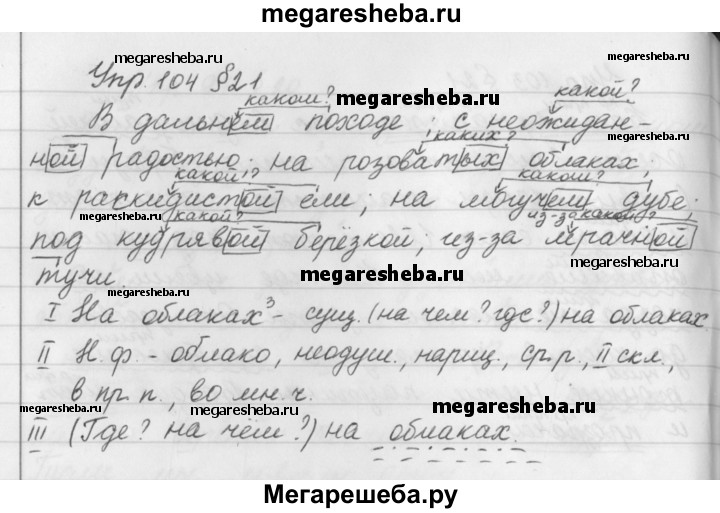 megaresheba.ru
megaresheba.ru megaresheba.ru
Упр. 104 §21
каком? megaresheba.ru какой?
В дальнем походе; с неожидан-
каких?
ной радостью; на розоватых облаках;
megaresheba.ru какой? каком? megaresheba.ru
к раскидистой ели; на могучем дубе;
megaresheba.ru какой? из-за какой?
под кудрявой берёзкой, из-за мрачной
megaresheba.ru megaresheba.ru
тучи. megaresheba.ru
megaresheba.ru
I На облаках³ - сущ. (на чем? где?) на облаках
II Н.ф. - облако, неодуш., нариц., ср.р., II скл.,
в пр.п., во мн.ч.
megaresheba.ru megaresheba.ru megaresheba.ru
III (Где? на чём?) на облаках.
megaresheba.ru
Мегарешеба.ру